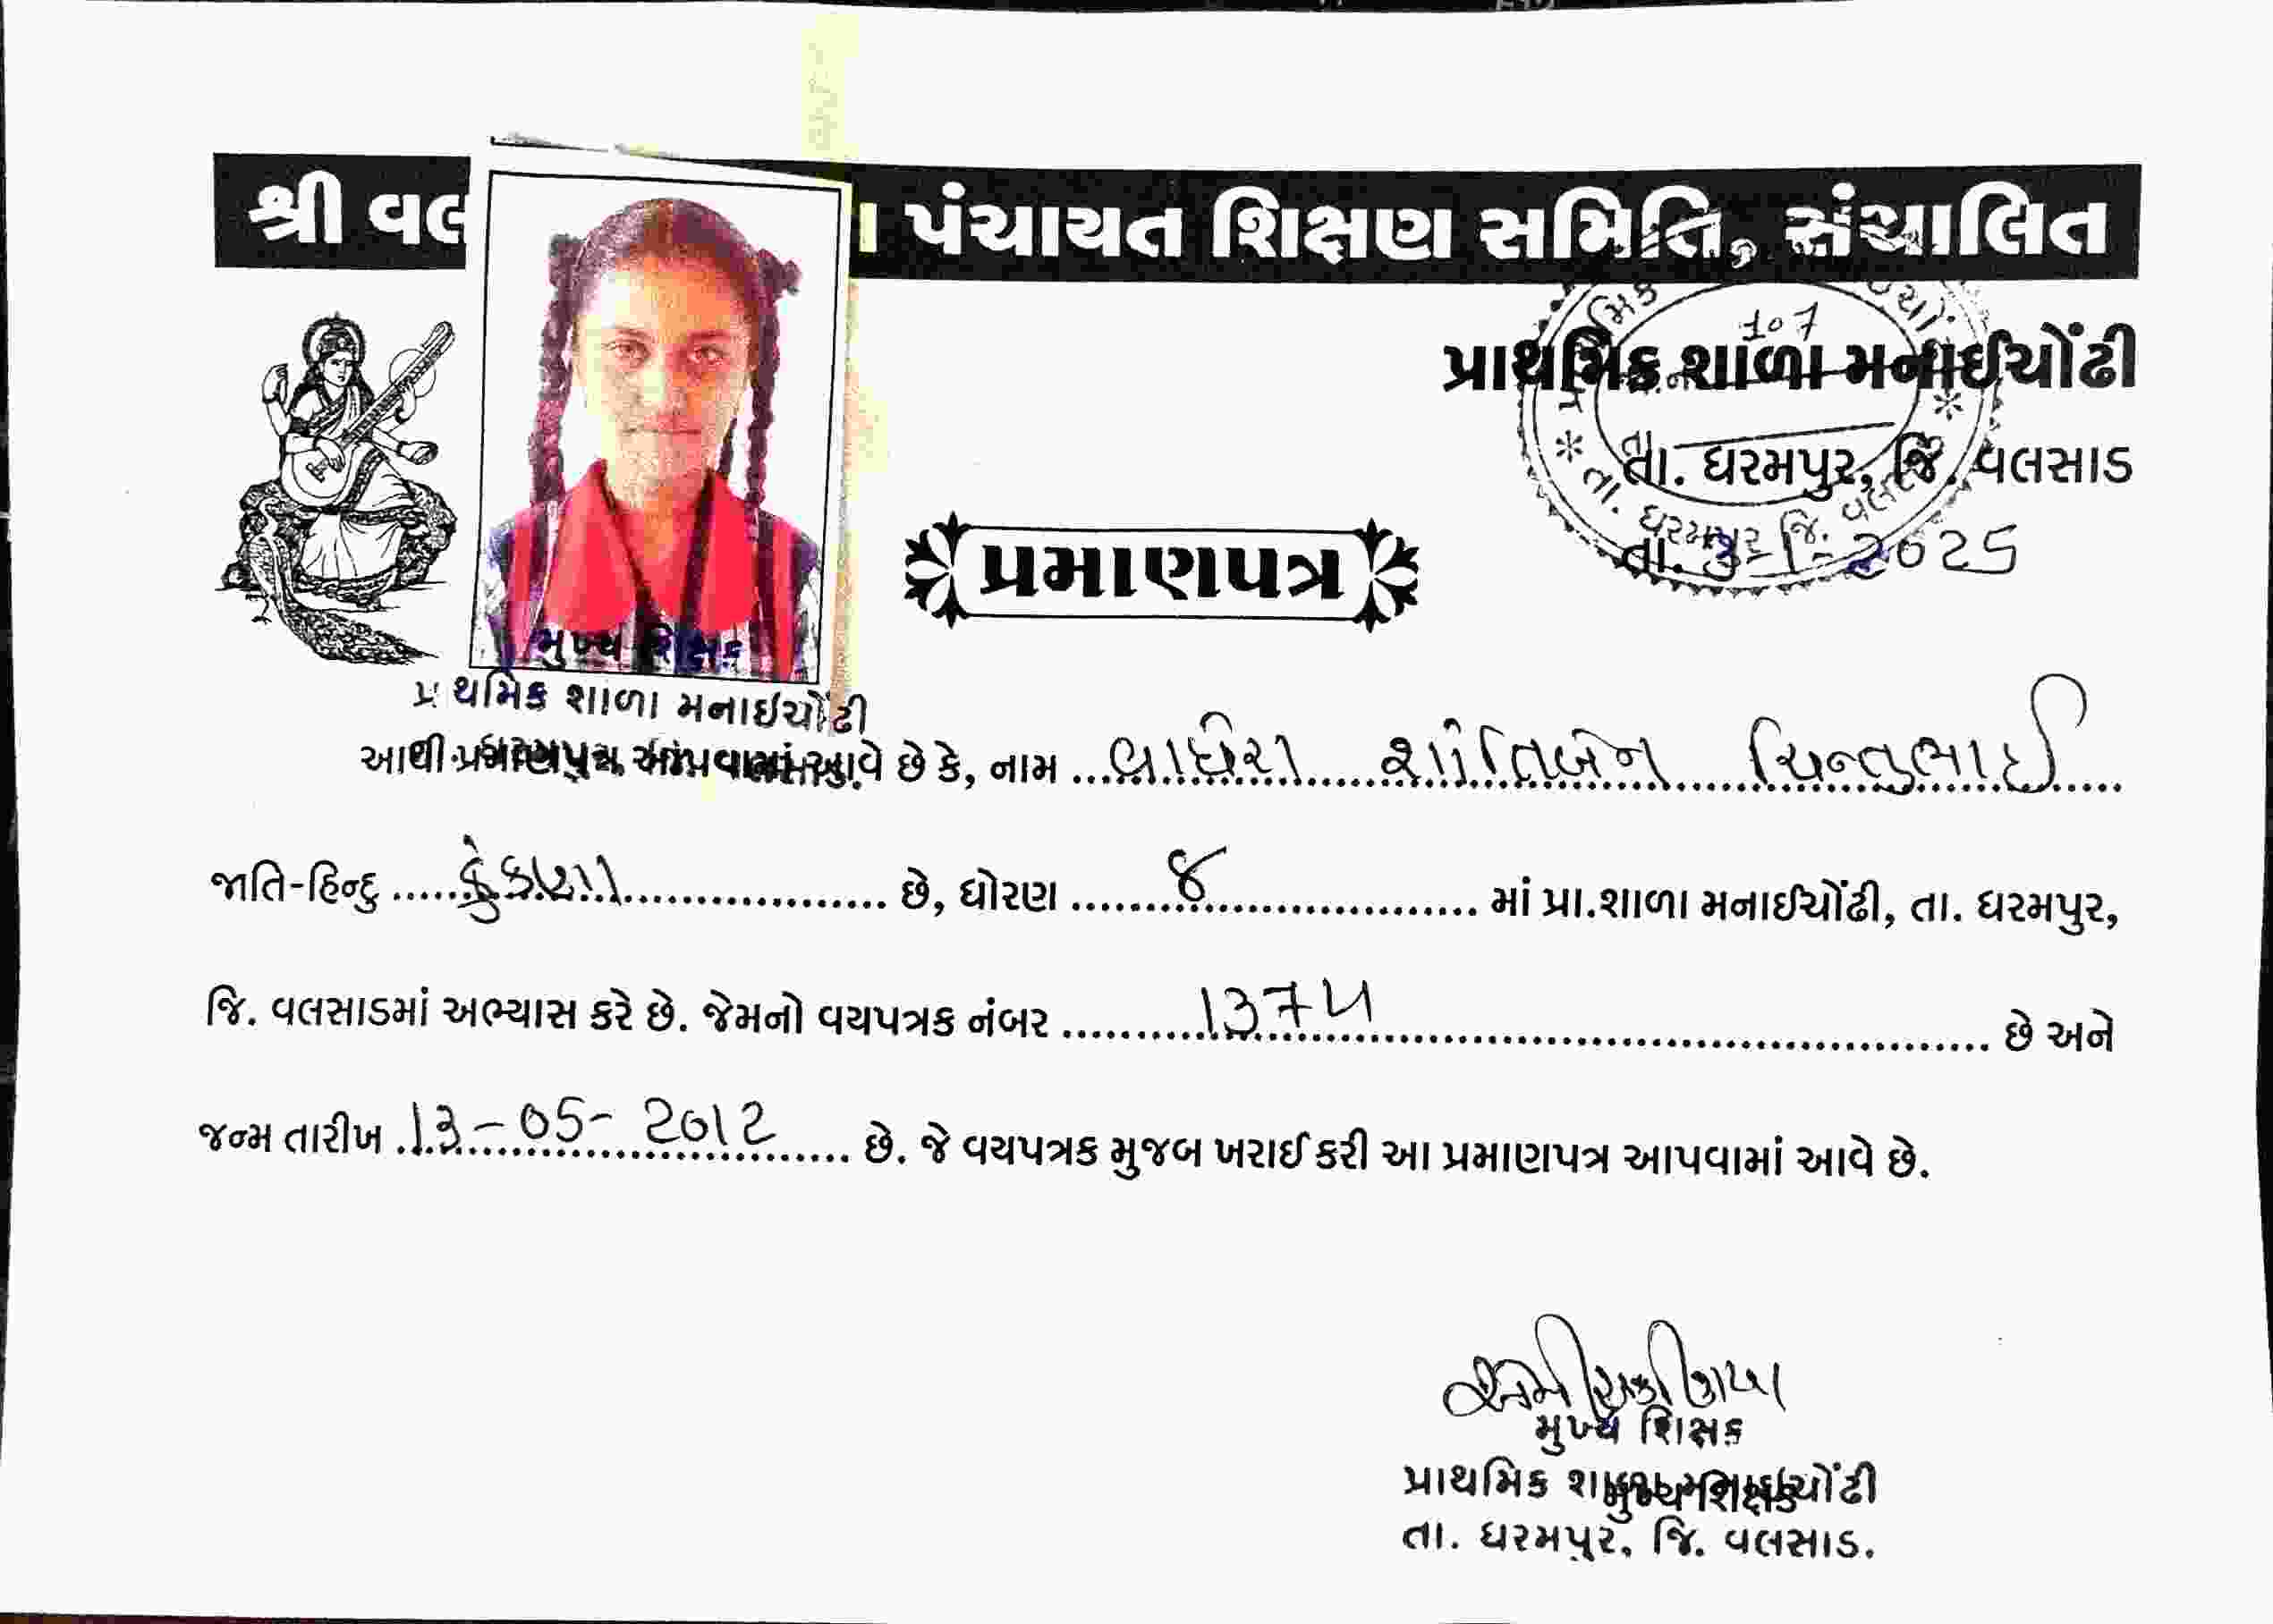 શ્રી વલ પંચાયત શિક્ષણ સમિતિ, સંચાલિત
107
પ્રાથમિક શાળા મનાઈચોંઢી
તા. ધરમપુર, જિ. વલસાડ
તા. ધરમપુર જિ.
તા. 3-1-2025
પ્રમાણપત્ર
મુખ્ય શિક્ષક
પ્રાથમિક શાળા મનાઈચોંઢી
આથી પ્રમાણપત્ર આપવામાં આવે છે કે, નામ વાઘેરા શાંતિબેન ચિન્તુભાઈ
જાતિ-હિન્દુ કુંકણા છે, ધોરણ ૪ માં પ્રા.શાળા મનાઈચોંઢી, તા. ધરમપુર,
જિ. વલસાડમાં અભ્યાસ કરે છે. જેમનો વયપત્રક નંબર 137૫ છે અને
જન્મ તારીખ 13-05-2012 છે. જે વયપત્રક મુજબ ખરાઈ કરી આ પ્રમાણપત્ર આપવામાં આવે છે.
મુખ્ય શિક્ષક
પ્રાથમિક શાળા મનાઈચોંઢી
મુખ્ય શિક્ષક
તા. ધરમપુર, જિ. વલસાડ.